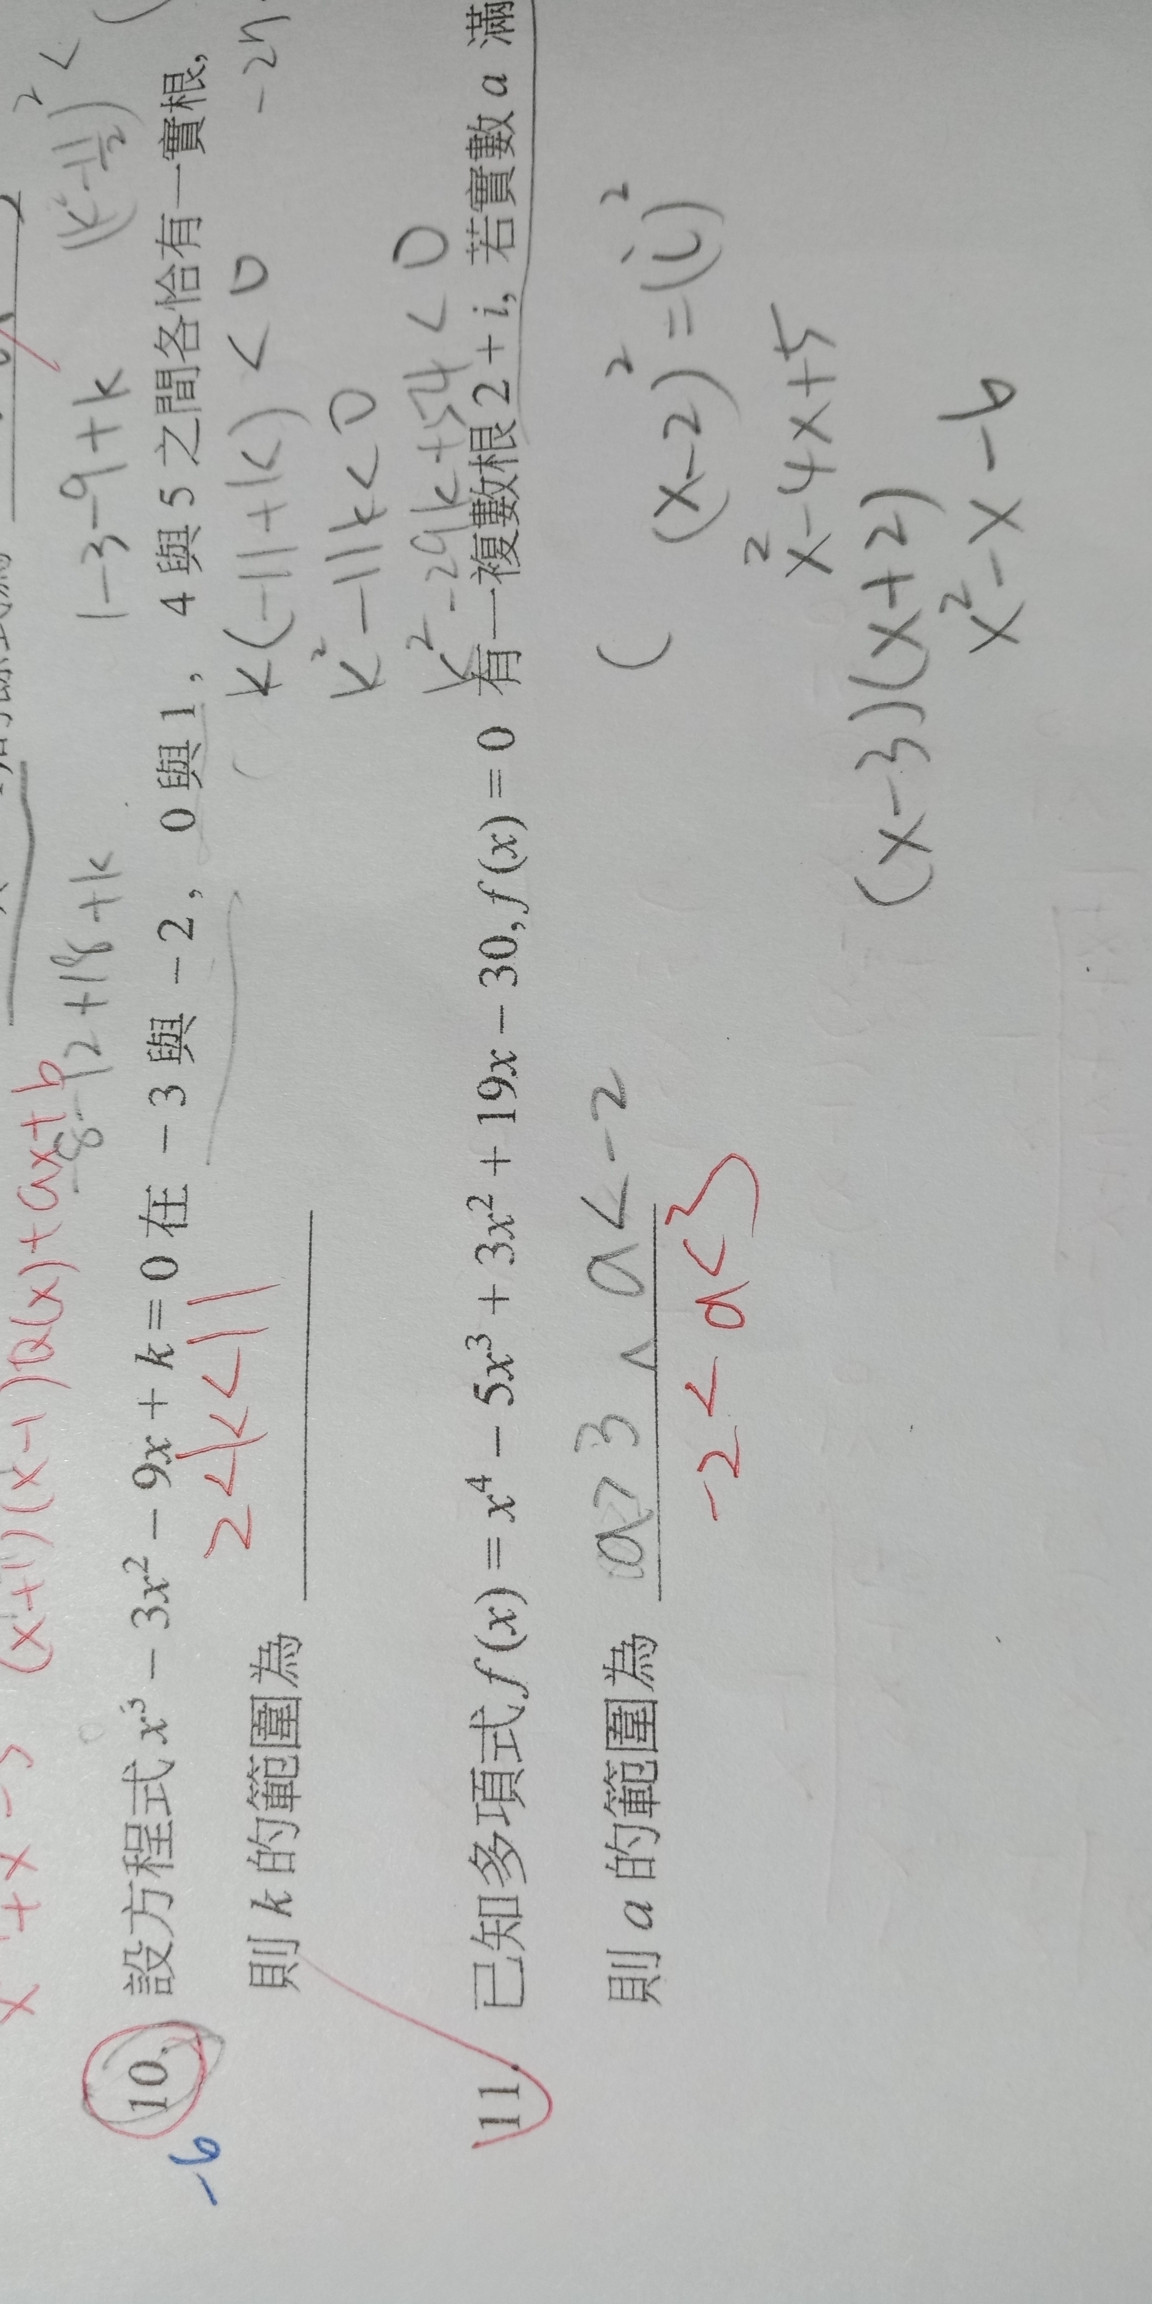 x + x - 3 (x+1)(x-1)Q(x)+ax+b
-8-12+18+k 1-3-9+k (k-11/2)² <
10. 設方程式 x³ - 3x² - 9x + k = 0 在 -3 與 -2，0 與 1，4 與 5 之間各恰有一實根,
-6
2<k<11 k(-11+k) < 0
則 k 的範圍為
k²-11k<0
k²-29k+54<0
11. 已知多項式 f(x) = x⁴ - 5x³ + 3x² + 19x - 30, f(x) = 0 有一複數根 2 + i, 若實數 a 滿
則 a 的範圍為 a>3 ∧ a<-2
-2<a<3
(x-2)²=(i)²
x²-4x+5
(x-3)(x+2)
x²-x-6